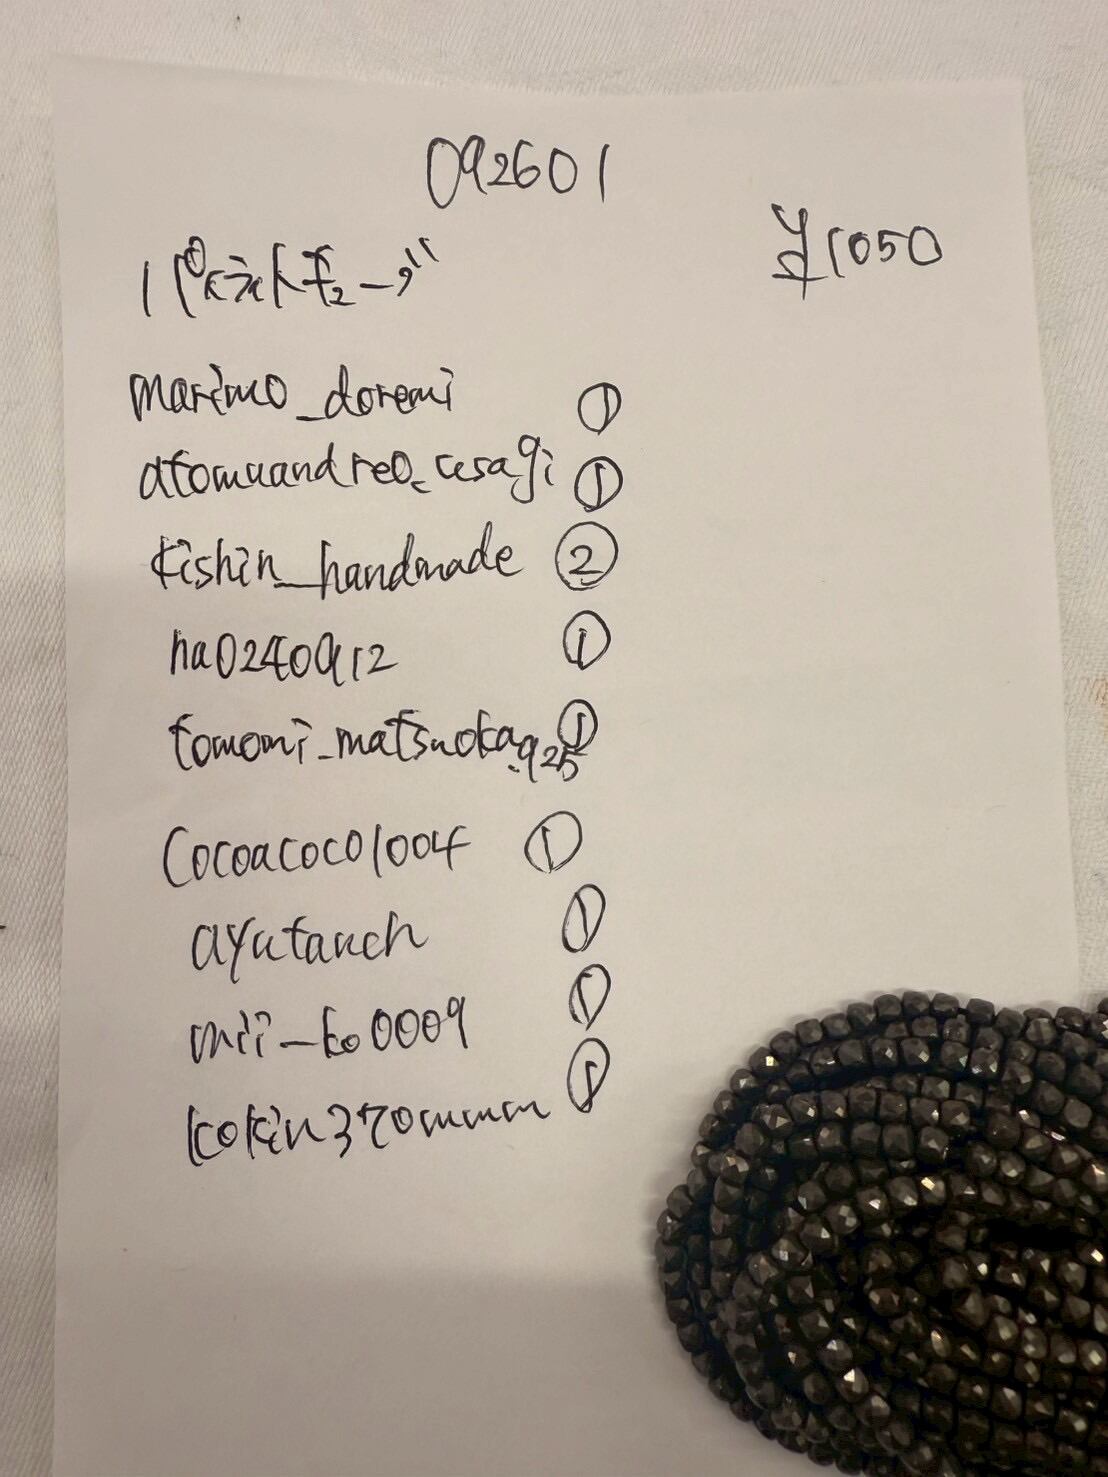 092601
¥1050
marimo_doremi ①
atomuandreo_usagi ①
kishin_handmade ②
na0240912 ①
tomomi_matsuoka.925 ①
cocoacoco1004 ①
ayutauch ①
mii_ko0009 ①
kokin370mmm ①